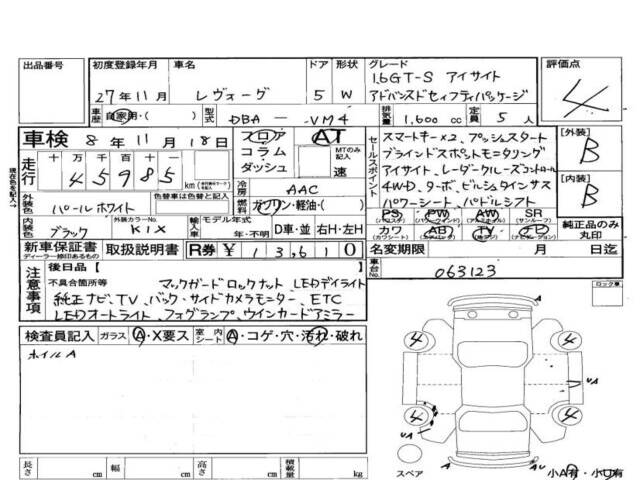 出品番号
初度登録年月
27年11月
車名
レヴォーグ
ドア
5
形状
W
グレード
1.6GT-S アイサイト
アドバンスドセイフティパッケージ
評価点
4
車歴
自家用・( )
型式
DBA — VM4
排気量
1,600 cc
定員
5人
車検
8年11月18日
フロア
コラム
ダッシュ
AT
MTのみ記入
速
セールスポイント
スマートキー×2、プッシュスタート
ブラインドスポットモニタリング
アイサイト、レーダークルーズコントロール
4WD、ターボ、ビルシュタインサス
パワーシート、パドルシフト
[外装]
B
[内装]
B
走行
十万千百十
45985
km
冷房
AAC
燃料
ガソリン・軽油・( )
外装色
パールホワイト
色替車は色替と記入
内装色
ブラック
外装カラーNo.
K1X
輸入車
モデル年式
年・不明
D車・並
右H・左H
PS
PW
AW
SR
カワ
AB
TV
純正品のみ
丸印
新車保証書
ディーラー捺印あるもの
取扱説明書
R券
¥13,610
名変期限
月
日迄
車台No.
063123
注意事項
後日品[ ]
不具合箇所等
マックガードロックナット、LEDデイライト
純正ナビ、TV、バック・サイドカメラモニター、ETC
LEDオートライト、フォグランプ、ウインカードアミラー
ロック車
検査員記入
ガラス
A・X要ス
室内
シート
A・コゲ・穴・汚れ・破れ
ホイルA
4
4
4
4
A
A
スペア
小A有・小U有
長さ
cm
幅
cm
高さ
cm
積載量
kg